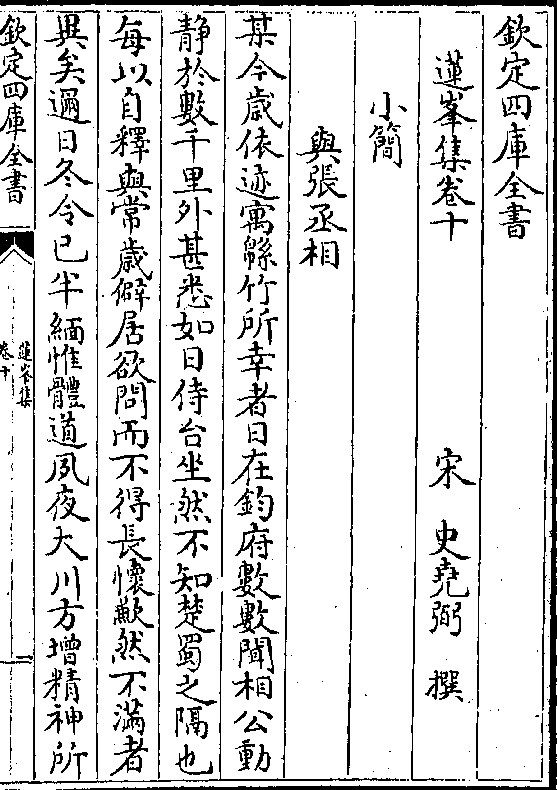 欽定四庫全書
蓮峯集卷十
宋 史堯弼 撰
小簡
與張丞相
某今歳依迹寓緜竹所幸者日在鈞府數數聞相公動
静於數千里外甚悉如日侍台坐然不知楚蜀之隔也
每以自釋與常歳僻居欲問而不得長懷歉然不滿者
異矣邇日冬令已半緬惟體道夙夜大川方增精神所
欽定四庫全書
蓮峯集
卷十
一